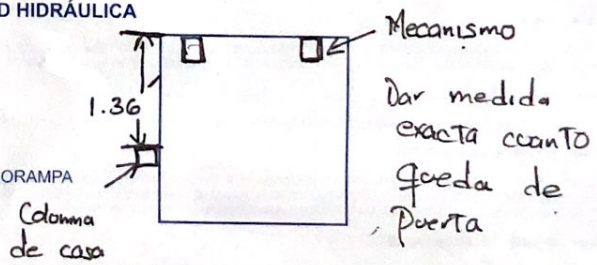 D HIDRÁULICA
Mecanismo
1.36
Dar medida
exacta ccanto
queda de
puerta
ORAMPA
Colomna
de casa